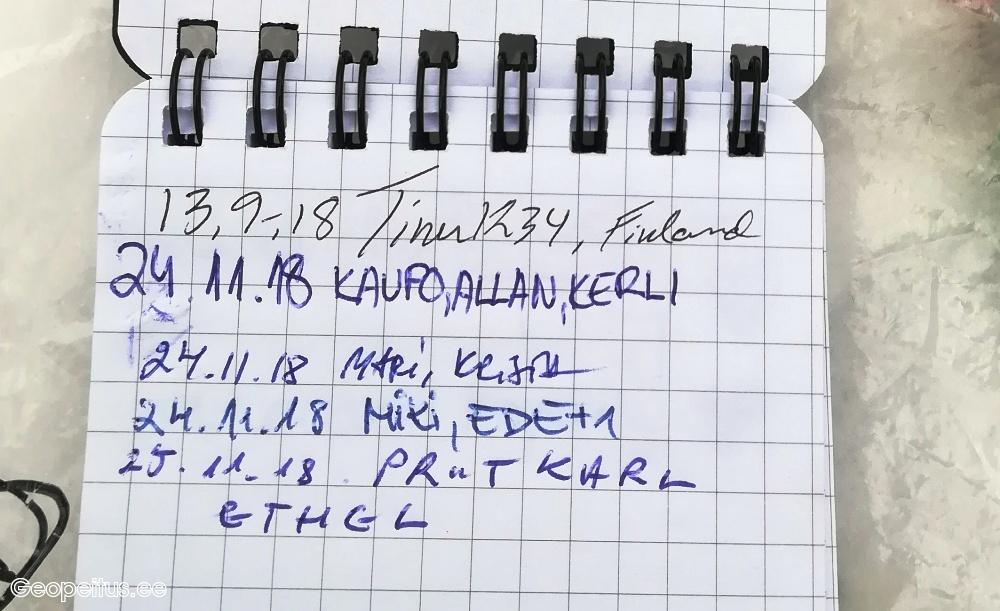 13,9-,18 Tinu1234, Finland
24.11.18 KAUFO, ALLAN, KERLI
24.11.18 MARi,
24.11.18 MiKi, EDE+1
25.11.18. PRiiT KARL
ETHEL
Geopeitus.ee